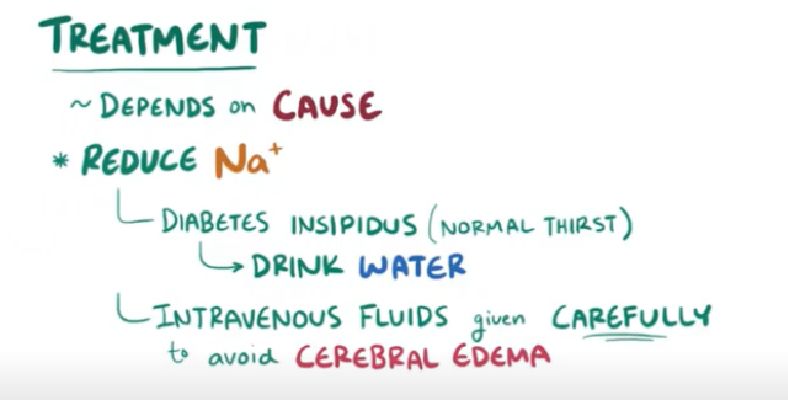 TREATMENT
~ DEPENDS on CAUSE
* REDUCE Na⁺
DIABETES INSIPIDUS (NORMAL THIRST)
→ DRINK WATER
INTRAVENOUS FLUIDS given CAREFULLY
to avoid CEREBRAL EDEMA